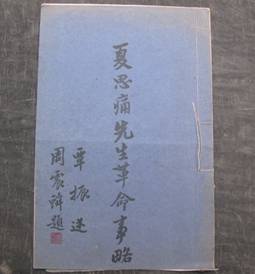 夏思痛先生革命事略
覃振述
周震鳞题